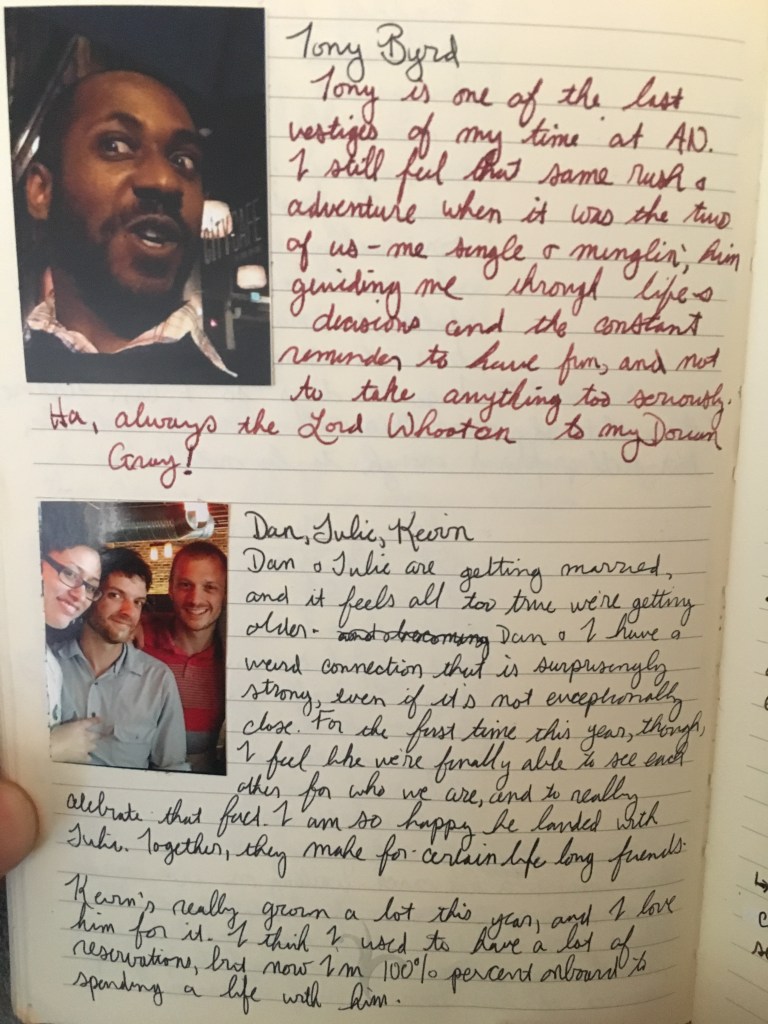 Tony Byrd
Tony is one of the last
vestiges of my time at AN.
I still feel that same rush &
adventure when it was the two
of us - me single & minglin', him
guiding me through life's
decisions and the constant
reminder to have fun, and not
to take anything too seriously.
Ha, always the Lord Whootan to my Dorian
Gray!
CITY CAFE
Dan, Julie, Kevin
Dan & Julie are getting married,
and it feels all too true we're getting
older. and becoming Dan & I have a
weird connection that is surprisingly
strong, even if it's not exceptionally
close. For the first time this year, though,
I feel like we're finally able to see each
other for who we are, and to really
celebrate that fact. I am so happy he landed with
Julie. Together, they make for certain life long friends.
Kevin's really grown a lot this year, and I love
him for it. I think I used to have a lot of
reservations, but now I'm 100% percent onboard to
spending a life with him.